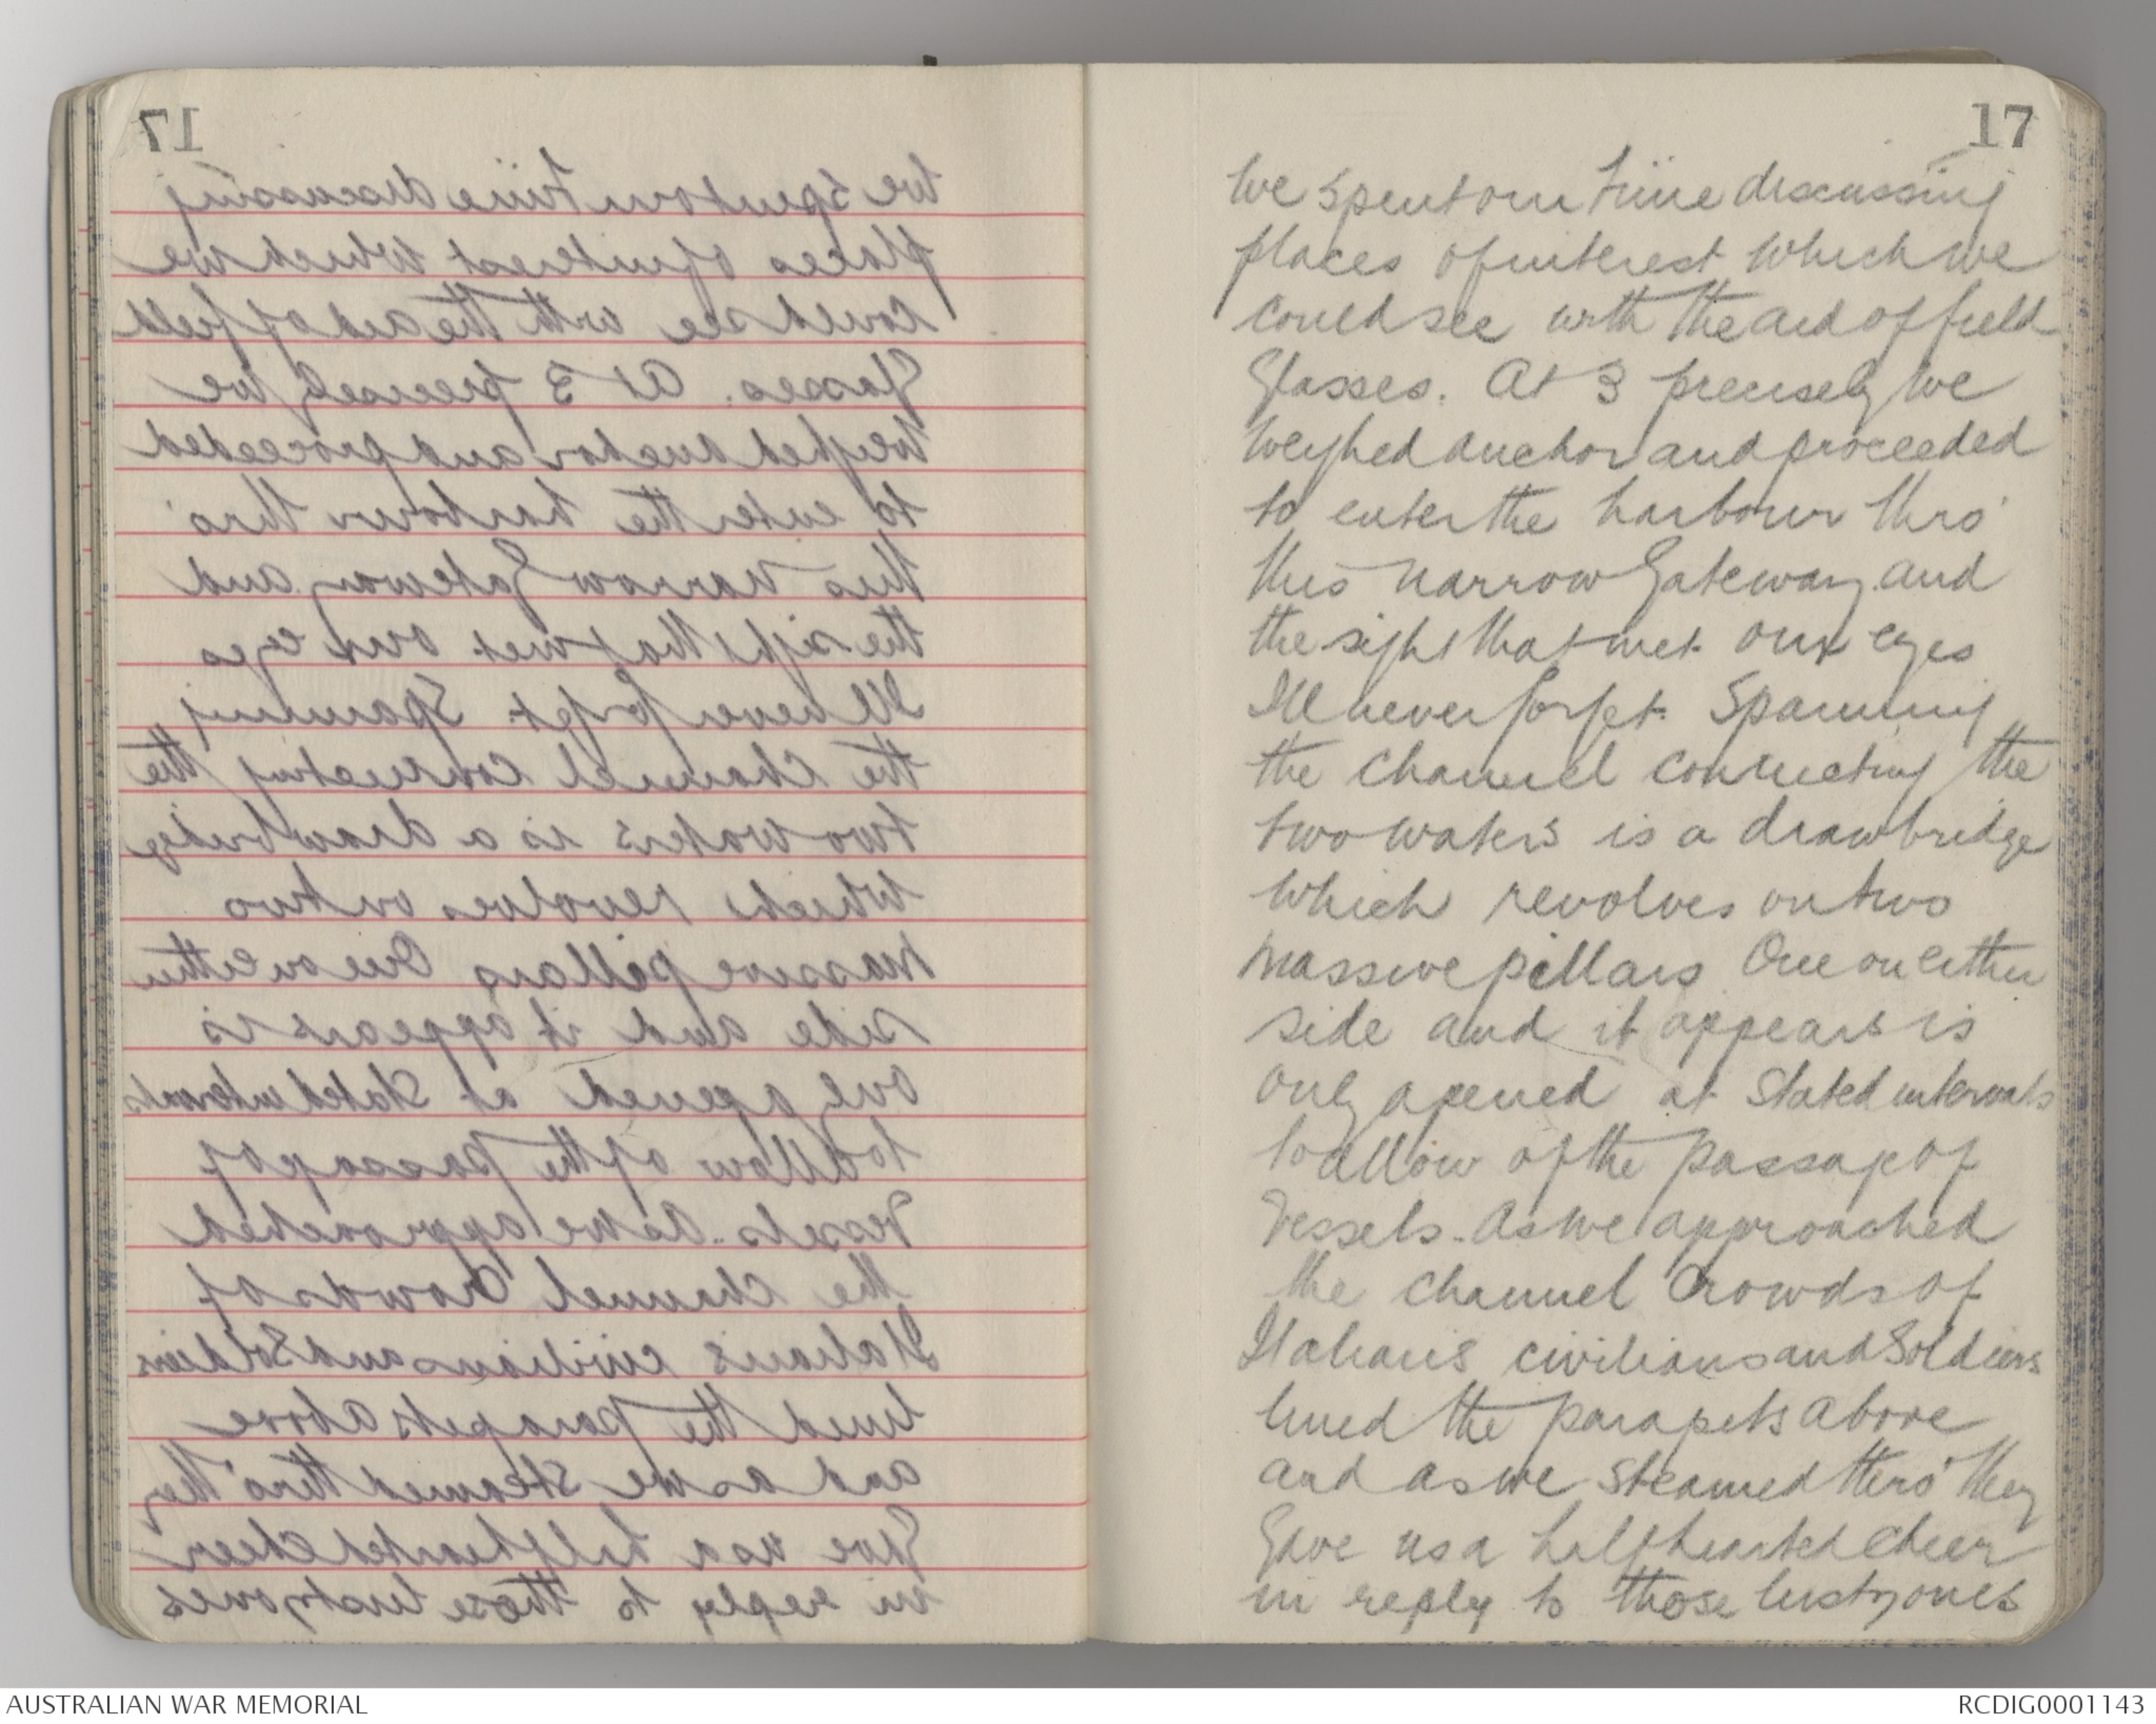 17
We spent our time discussing
places of interest which we
could see with the aid of field
Glasses. At 3 precisely we
weighed anchor and proceeded
to enter the harbour thro'
this narrow Gateway and
the sight that met our eyes
Ill never forget. Spanning
the channel connecting the
two waters is a drawbridge
which revolves on two
massive pillars One on either
side and it appears is
only opened at stated intervals
to allow of the passage of
Vessels. As we approached
the channel Crowds of
Italians civilians and Soldiers
lined the parapets above
and as we steamed thro' they
Gave us a half hearted cheer
in reply to those lusty ones
AUSTRALIAN WAR MEMORIAL
RCDIG0001143